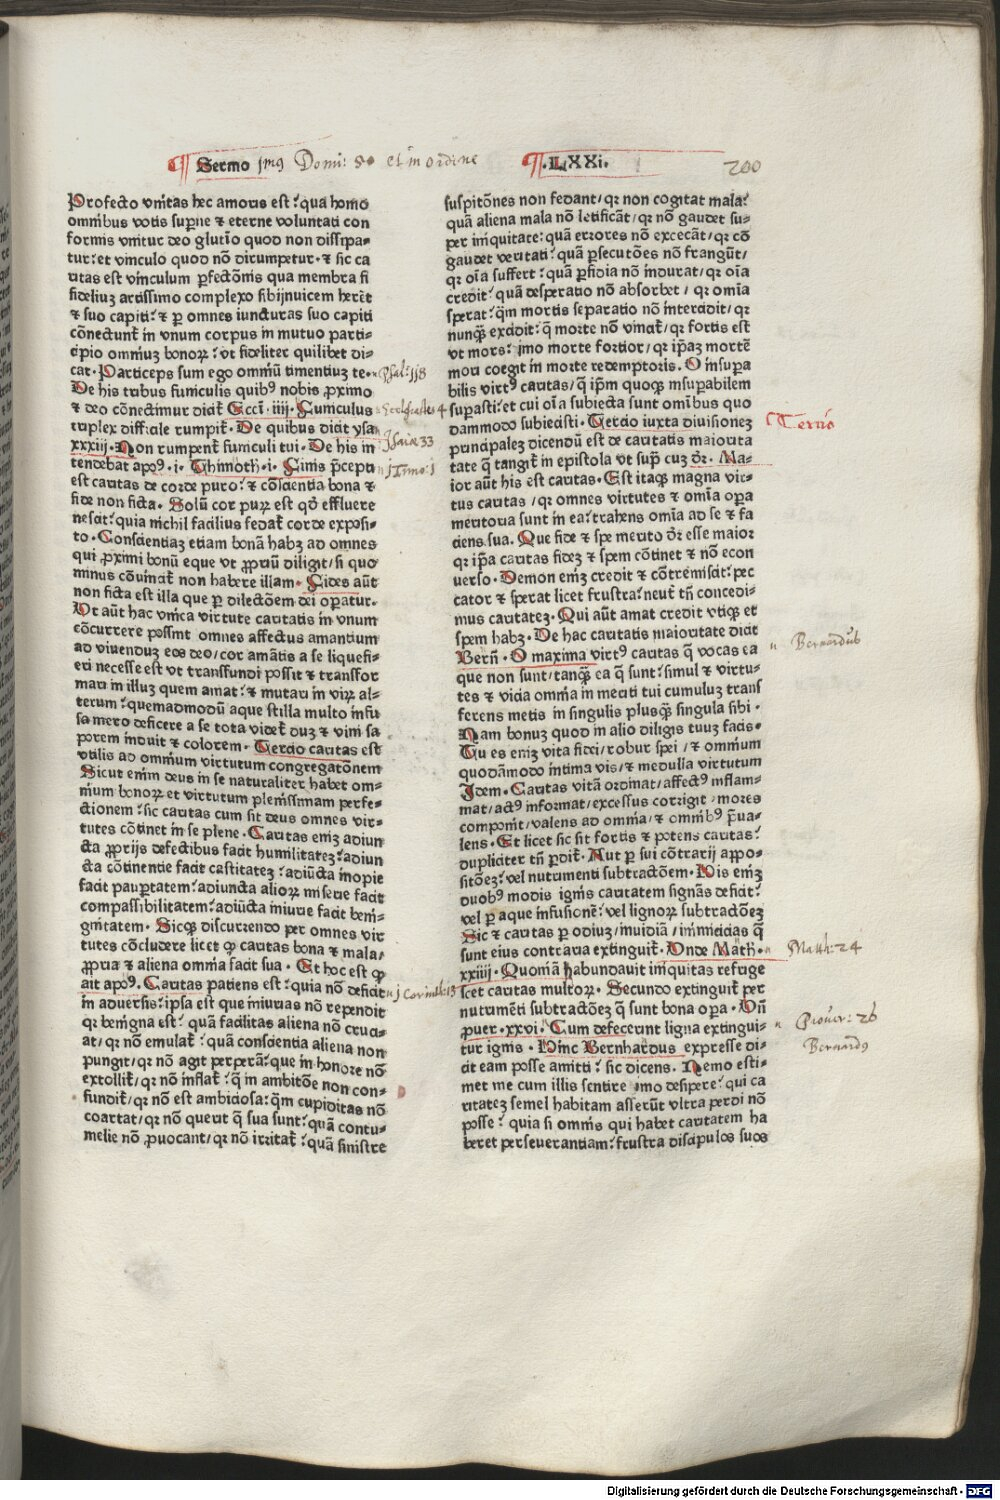 ¶ Sermo jmꝯ Domi: 50 et in ordine ¶ .LXXi. 200
Profecto vnitas hec amoris est: qua homo
omnibus votis supne ⁊ eterne voluntati con
formis vnitur deo glutio quod non dissipa-
tur: et vinculo quod nō dirumpetur. ⁊ sic ca
ritas est vinculum pfectōnis qua membra fi
fidelium artissimo complexo sibijnuicem heret
⁊ suo capiti: ⁊ p omnes iuncturas suo capiti
cōnectunt̄ in vnum corpus in mutuo parti-
cipio omniuꝫ bonoꝝ: vt fideliter quilibet di-
cat. Particeps sum ego omniū timentiuꝫ te.
De his tribus funiculis quibꝯ nobis proximo
⁊ deo cōnectimur dicit̄ Ecci. iiij. Funiculus
triplex difficale rumpit̄. De quibus dicit ysa.
xxxiij. Non rumpent̄ funiculi tui. De his in
tendebat apoꝯ. i. Thimoth. i. Finis p̄cepti
est caritas de corde puro: ⁊ cōscientia bona ⁊
fide non ficta. Solū cor puꝝ est qď effluere
nescit: quia nichil facilius fedat̄ corde exposi-
to. Conscientiaꝫ etiam bonā habꝫ ad omnes
qui proximi bonū eque vt propriū diligit / si quo
minus cōuincat̄ non habere illam. Fides aūt
non ficta est illa que p dilectōem dei opatur.
Ut aūt hac vnica virtute caritatis in vnum
cōcurrere possint omnes affectus amantium
ad viuenduꝫ eos deo / cor amātis a se liquefi-
eri necesse est vt transfundi possit ⁊ transfor
mari in illuꝫ quem amat: ⁊ mutari in viꝝ al-
terum: quemadmodū aque stilla multo infu
sa mero deficere a se tota videt̄ duꝫ ⁊ vini sa
porem induit ⁊ colorem. Tercio caritas est
vtilis ad omnium virtutum congregatōnem
Sicut enim deus in se naturaliter habet om-
nium bonoꝝ et virtutum plenissimam perfe-
ctionem: sic caritas cum sit deus omnes vir-
tutes cōtinet in se plene. Caritas emꝫ adiun
cta proprijs defectibus facit humilitateꝫ: adiun
cta cōtinentie facit castitateꝫ: adiūcta inopie
facit paupertatem: adiuncta alioꝝ miserie facit
compassibilitatem: adiūcta iniurie facit beni-
gnitatem. Sicqꝫ discurrendo per omnes vir
tutes cōcludere licet ꝙ caritas bona ⁊ mala /
propria ⁊ aliena omnia facit sua. Et hoc est ꝙ
ait apoꝯ. Caritas patiens est: quia nō deficit
in aduersis: ipsa est que iniurias nō rependit
qꝛ benigna est: quā facilitas aliena nō cruci-
at / qꝛ nō emulat̄: quā conscientia aliena non
pungit / qꝛ nō agit perperā: que in honore nō
extollit̄ / qꝛ nō inflat̄: q̄ in ambitōe non con-
fundit̄ / qꝛ nō est ambiciosa: qm̄ cupiditas nō
coartat / qꝛ nō querit q̄ sua sunt: quā contu-
melie nō prouocant / qꝛ nō irritat̄: quā sinistre
Psal: 118
Ecclesiastes 4
Jsaiæ 33
j Timo: j
j Corinth: 13
suspitōnes non fedant / qꝛ non cogitat mala:
quā aliena mala nō letificāt / qꝛ nō gaudet su-
per iniquitate: quā errores nō excecāt / qꝛ cō
gaudet veritati: quā psecutōes nō frangūt /
qꝛ oīa suffert: quā pfidia nō indurat / qꝛ oīa
credit: quā desperatio nō absorbet / qꝛ omīa
sperat: qm̄ mortis separatio nō intercidit / qꝛ
nunqꝫ excidit: q̄ morte nō vincat̄ / qꝛ fortis est
vt mors: jmo morte fortior / qꝛ ip̄aꝫ mortē
mori coegit in morte redemptoris. O insupa
bilis virtꝯ caritas / q̄ ip̄m quoqꝫ insupabilem
supasti: et cui oīa subiecta sunt omībus quo
dammodo subiecisti. Tercio iuxta diuisionez
principalez dicendū est de caritatis maiorita
tate q̄ tangit̄ in epistola vt sup̄ cuꝫ dr̄. Ma-
ior aūt his est caritas. Est itaqꝫ magna vir-
tus caritas / qꝛ omnes virtutes ⁊ omīa opa
meritoria sunt in ea: trahens omīa ad se ⁊ fa
ciens sua. Que fide ⁊ spe merito dr̄ esse maior
qꝛ ip̄a caritas fideꝫ ⁊ spem cōtinet ⁊ nō econ
uerso. Demon emꝫ credit ⁊ cōtremiscit: pec
cator ⁊ sperat licet frustra: neut̄ tn̄ concedi-
mus caritateꝫ. Qui aūt amat credit vtiqꝫ et
spem habꝫ. De hac caritatis maioritate dicit
Bern̄. O maxima virtꝯ caritas q̄ vocas ea
que non sunt / tanqꝫ ea q̄ sunt: simul ⁊ virtu-
tes ⁊ vicia omnia in meriti tui cumuluꝫ trans
ferens metis in singulis plusqꝫ singula sibi.
Nam bonuꝫ quod in alio diligis tuuꝫ facis.
Tu es emꝫ vita fidei / robur spei / ⁊ omnium
quodāmodo intima vis / ⁊ medulla virtutum
Idem. Caritas vitā ordinat / affectꝯ inflam-
mat / actꝯ informat / excessus corrigit / mores
componit / valens ad omnia / ⁊ omnibꝯ p̄ua-
lens. Et licet sic sit fortis ⁊ potens caritas:
dupliciter tn̄ pdit̄. Aut p sui cōtrarij appo-
sitōeꝫ: vel nutrimenti subtractōem. His emꝫ
duobꝯ modis ignis caritatem signās deficit:
vel p aque infusionē: vel lignoꝝ subtractōeꝫ
Sic ⁊ caritas p odiuꝫ / inuidiā / inimicicias q̄
sunt eius contraria extinguit̄. Onde Math.
xxiiij. Quoniā habundauit iniquitas refrige
scet caritas multoꝝ. Secundo extinguit̄ per
nutrimēti subtractōeꝫ q̄ sunt bona opa. Vn̄
puer. xxvi. Cum defecerint ligna extingui-
tur ignis. Hinc Bernhardus expresse di-
cit eam posse amitti: sic dicens. Nemo esti-
met me cum illis sentire imo desipere: qui ca
ritateꝫ semel habitam asserūt vltra perdi nō
posse: quia si omnis qui habet caritatem ha
beret perseuerantiam: frustra discipulos suos
Tertio
Bernardus
Math: 24
Prouer: 26
Bernardꝯ
Digitalisierung gefördert durch die Deutsche Forschungsgemeinschaft - DFG